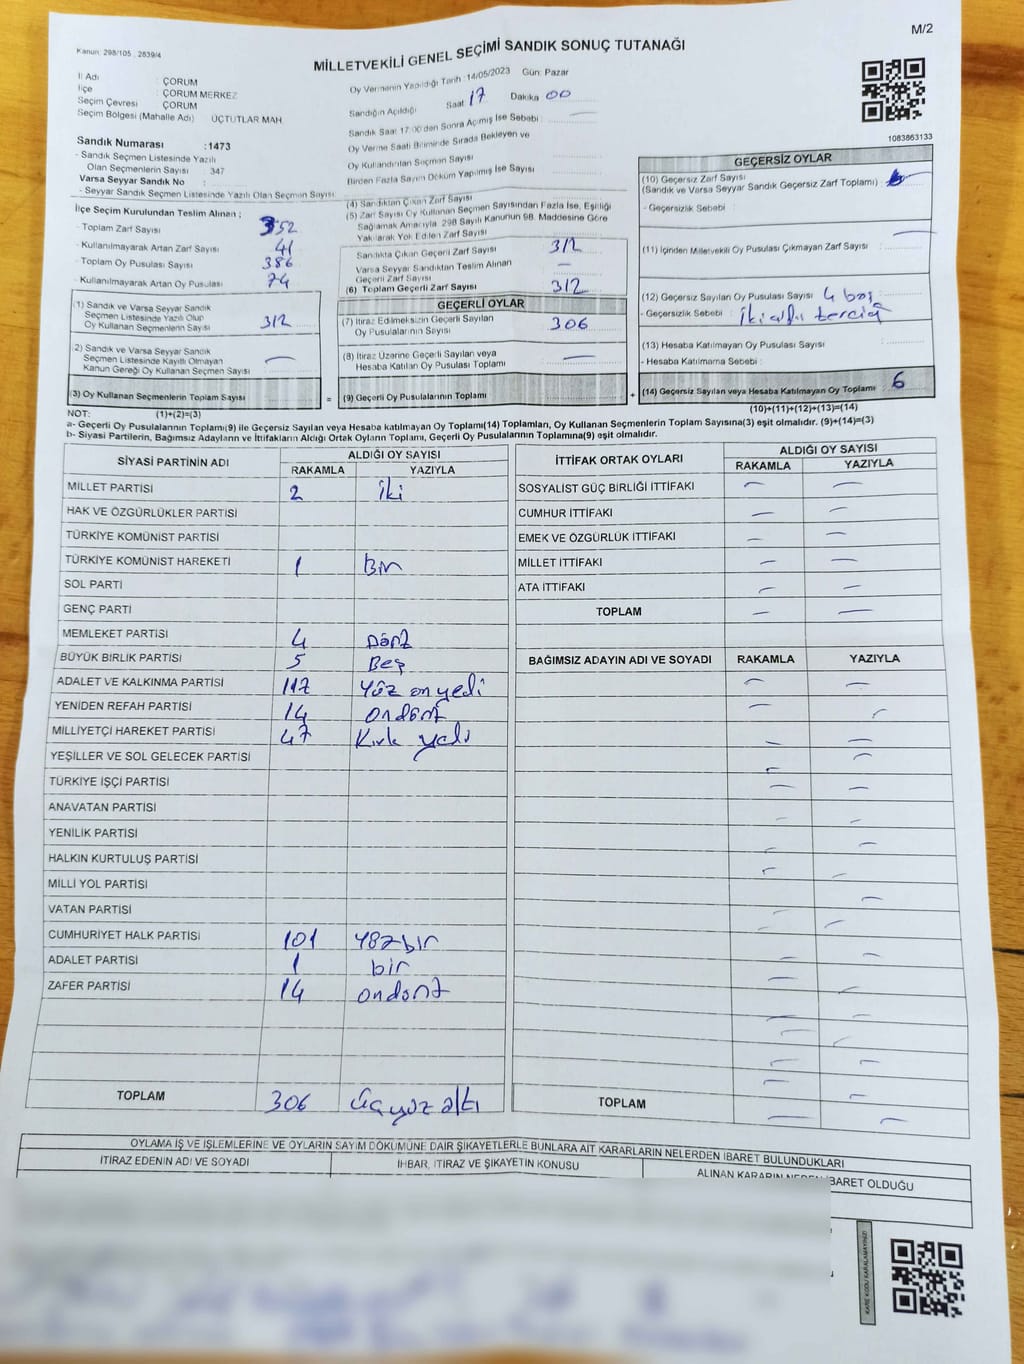 M/2
Kanun: 298/105 , 2839/4
MİLLETVEKİLİ GENEL SEÇİMİ SANDIK SONUÇ TUTANAĞI
İl Adı : ÇORUM
İlçe : ÇORUM MERKEZ
Seçim Çevresi : ÇORUM
Seçim Bölgesi (Mahalle Adı) : ÜÇTUTLAR MAH
Oy Vermenin Yapıldığı Tarih :14/05/2023 Gün: Pazar
Sandığın Açıldığı Saat 17 Dakika 00
Sandık Saat 17:00'den Sonra Açılmış İse Sebebi :
Oy Verme Saati Bitiminde Sırada Bekleyen ve
Oy Kullandırılan Seçmen Sayısı
Birden Fazla Sayım Döküm Yapılmış İse Sayısı
1083863133
Sandık Numarası :1473
- Sandık Seçmen Listesinde Yazılı
Olan Seçmenlerin Sayısı : 347
Varsa Seyyar Sandık No :
- Seyyar Sandık Seçmen Listesinde Yazılı Olan Seçmen Sayısı
İlçe Seçim Kurulundan Teslim Alınan ;
- Toplam Zarf Sayısı 352
- Kullanılmayarak Artan Zarf Sayısı 41
- Toplam Oy Pusulası Sayısı 386
- Kullanılmayarak Artan Oy Pusulası 74
(1) Sandık ve Varsa Seyyar Sandık
Seçmen Listesinde Yazılı Olup
Oy Kullanan Seçmenlerin Sayısı 312
2) Sandık ve Varsa Seyyar Sandık
Seçmen Listesinde Kayıtlı Olmayan
Kanun Gereği Oy Kullanan Seçmen Sayısı —
(3) Oy Kullanan Seçmenlerin Toplam Sayısı =
(4) Sandıktan Çıkan Zarf Sayısı
(5) Zarf Sayısı Oy Kullanan Seçmen Sayısından Fazla İse, Eşitliği
Sağlamak Amacıyla 298 Sayılı Kanunun 98. Maddesine Göre
Yakılarak Yok Edilen Zarf Sayısı
Sandıkta Çıkan Geçerli Zarf Sayısı 312
Varsa Seyyar Sandıktan Teslim Alınan
Geçerli Zarf Sayısı —
(6) Toplam Geçerli Zarf Sayısı 312
GEÇERLİ OYLAR
(7) İtiraz Edilmeksizin Geçerli Sayılan
Oy Pusulalarının Sayısı 306
(8) İtiraz Üzerine Geçerli Sayılan veya
Hesaba Katılan Oy Pusulası Toplamı —
(9) Geçerli Oy Pusulalarının Toplamı +
GEÇERSİZ OYLAR
(10) Geçersiz Zarf Sayısı
(Sandık ve Varsa Seyyar Sandık Geçersiz Zarf Toplamı)
- Geçersizlik Sebebi :
(11) İçinden Milletvekili Oy Pusulası Çıkmayan Zarf Sayısı :
(12) Geçersiz Sayılan Oy Pusulası Sayısı
- Geçersizlik Sebebi :
(13) Hesaba Katılmayan Oy Pusulası Sayısı :
- Hesaba Katılmama Sebebi :
(14) Geçersiz Sayılan veya Hesaba Katılmayan Oy Toplamı 6
NOT: (1)+(2)=(3) (10)+(11)+(12)+(13)=(14)
a- Geçerli Oy Pusulalarının Toplamı(9) ile Geçersiz Sayılan veya Hesaba Katılmayan Oy Toplamı(14) Toplamları, Oy Kullanan Seçmenlerin Toplam Sayısına(3) eşit olmalıdır. (9)+(14)=(3)
b- Siyasi Partilerin, Bağımsız Adayların ve İttifakların Aldığı Ortak Oyların Toplamı, Geçerli Oy Pusulalarının Toplamına(9) eşit olmalıdır.
SİYASİ PARTİNİN ADI ALDIĞI OY SAYISI
RAKAMLA YAZIYLA
MİLLET PARTİSİ 2 iki
HAK VE ÖZGÜRLÜKLER PARTİSİ
TÜRKİYE KOMÜNİST PARTİSİ
TÜRKİYE KOMÜNİST HAREKETİ 1 Bir
SOL PARTİ
GENÇ PARTİ
MEMLEKET PARTİSİ 4 Dört
BÜYÜK BİRLİK PARTİSİ 5 Beş
ADALET VE KALKINMA PARTİSİ 117 Yüz on yedi
YENİDEN REFAH PARTİSİ 14 ondört
MİLLİYETÇİ HAREKET PARTİSİ 47 Kırk yedi
YEŞİLLER VE SOL GELECEK PARTİSİ
TÜRKİYE İŞÇİ PARTİSİ
ANAVATAN PARTİSİ
YENİLİK PARTİSİ
HALKIN KURTULUŞ PARTİSİ
MİLLİ YOL PARTİSİ
VATAN PARTİSİ
CUMHURİYET HALK PARTİSİ 101 Yüzbir
ADALET PARTİSİ 1 bir
ZAFER PARTİSİ 14 ondört
TOPLAM 306 üçyüz altı
İTTİFAK ORTAK OYLARI ALDIĞI OY SAYISI
RAKAMLA YAZIYLA
SOSYALİST GÜÇ BİRLİĞİ İTTİFAKI — —
CUMHUR İTTİFAKI — —
EMEK VE ÖZGÜRLÜK İTTİFAKI — —
MİLLET İTTİFAKI — —
ATA İTTİFAKI — —
TOPLAM — —
BAĞIMSIZ ADAYIN ADI VE SOYADI RAKAMLA YAZIYLA
TOPLAM — —
OYLAMA İŞ VE İŞLEMLERİNE VE OYLARIN SAYIM DÖKÜMÜNE DAİR ŞİKAYETLERLE BUNLARA AİT KARARLARIN NELERDEN İBARET BULUNDUKLARI
İTİRAZ EDENİN ADI VE SOYADI İHBAR, İTİRAZ VE ŞİKAYETİN KONUSU ALINAN KARARIN NEDEN İBARET OLDUĞU
KARE KODU KARALAMAYINIZ!